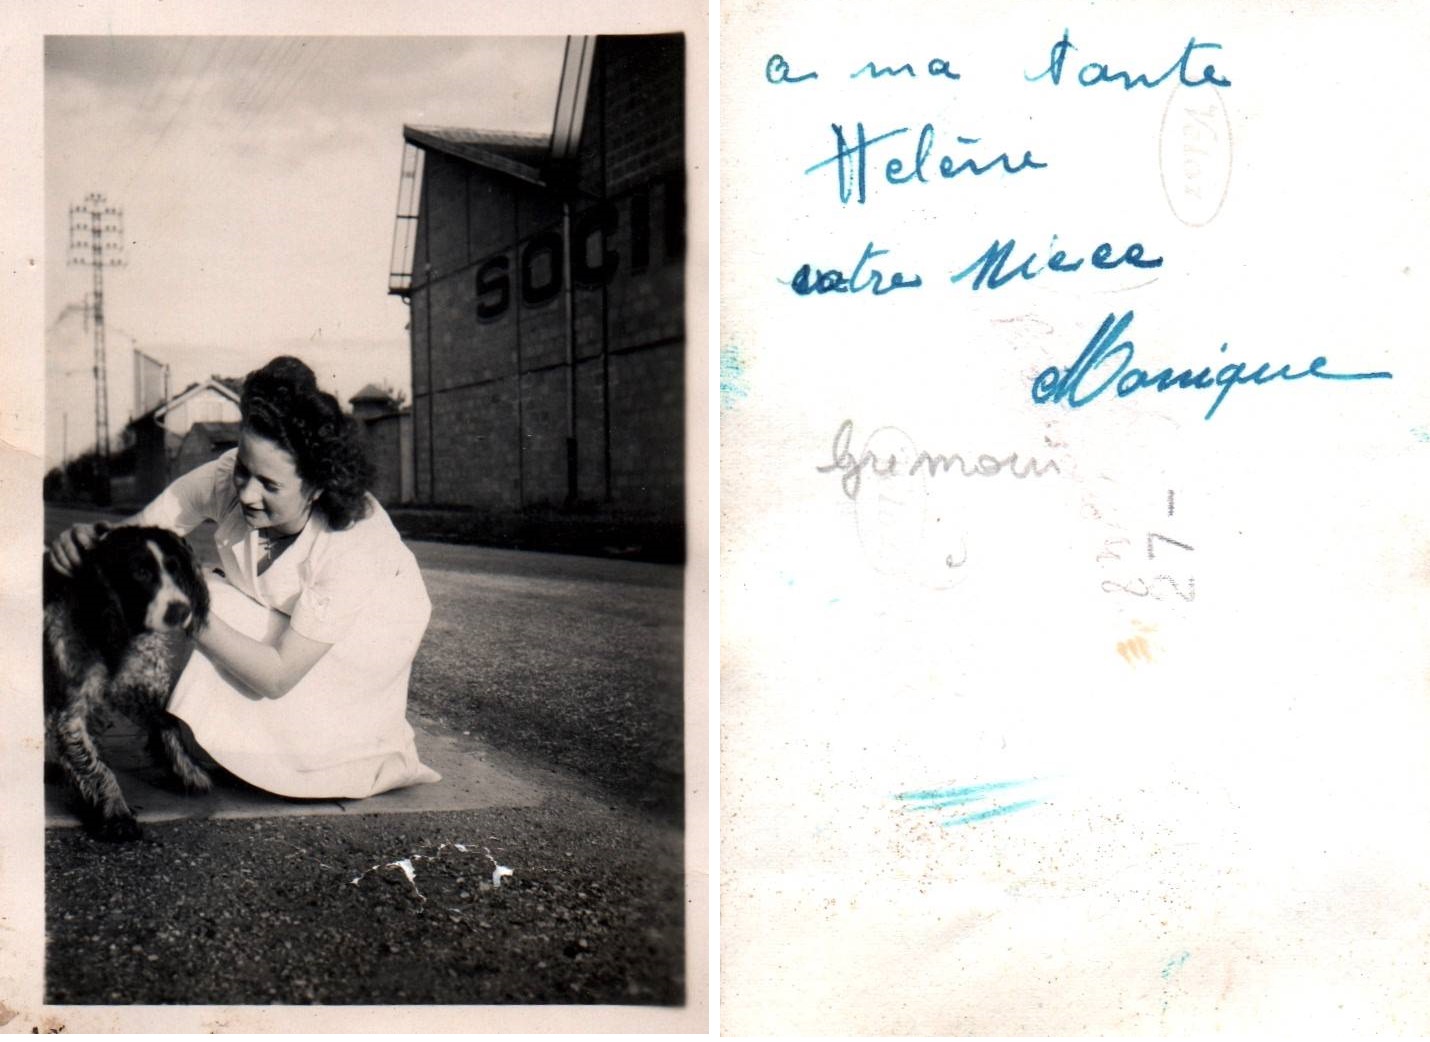 SOCI
a ma tante
Helène
votre Niece
Monique
Velox
27-